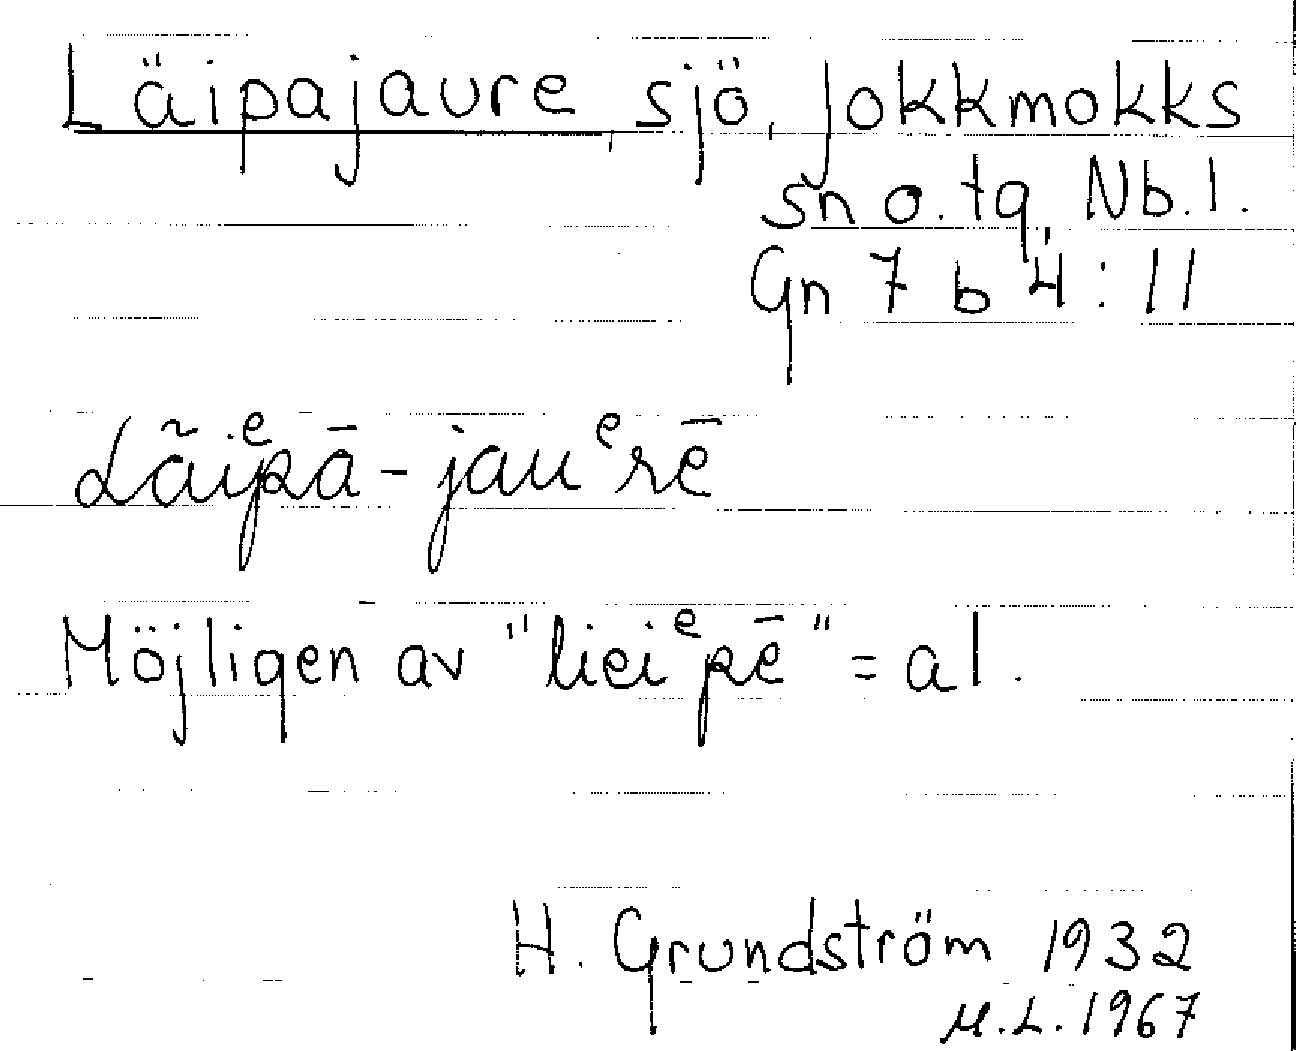 Läipajaure, sjö, Jokkmokks
sn o. tg, Nb.l.
Gn 7 b 4 : 11
Lãiᵉpā-jauᵉrē
Möjligen av "lieiᵉpē" = al.
H. Grundström 1932
M.L. 1967